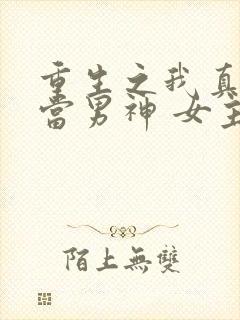 重生之我真
当男神 女主
陌上無雙